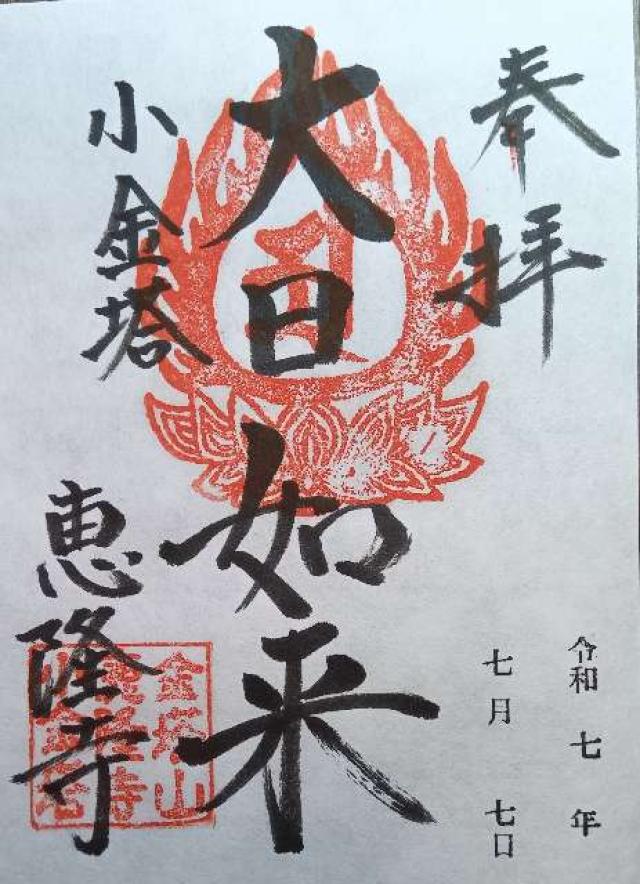 奉拝
令和七年
七月七日
大日如来
小金塔
恵隆寺
金塔山
恵隆寺
小金塔